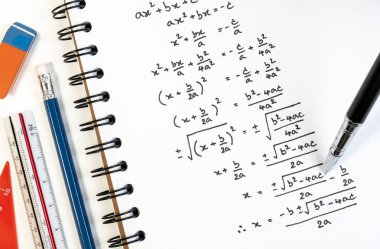 ax² + bx + c
ax² + bx = -c
x² + bx/a = -c/a
x² + b/a x + b²/4a² = -c/a + b²/4a²
(x + b/2a)² = b² - 4ac/4a²
±√(x + b/2a)² = ±√b² - 4ac/4a²
x + b/2a = ±√b² - 4ac/2a
x = ±√b² - 4ac/2a - b/2a
∴ x = -b ± √b² - 4ac/2a